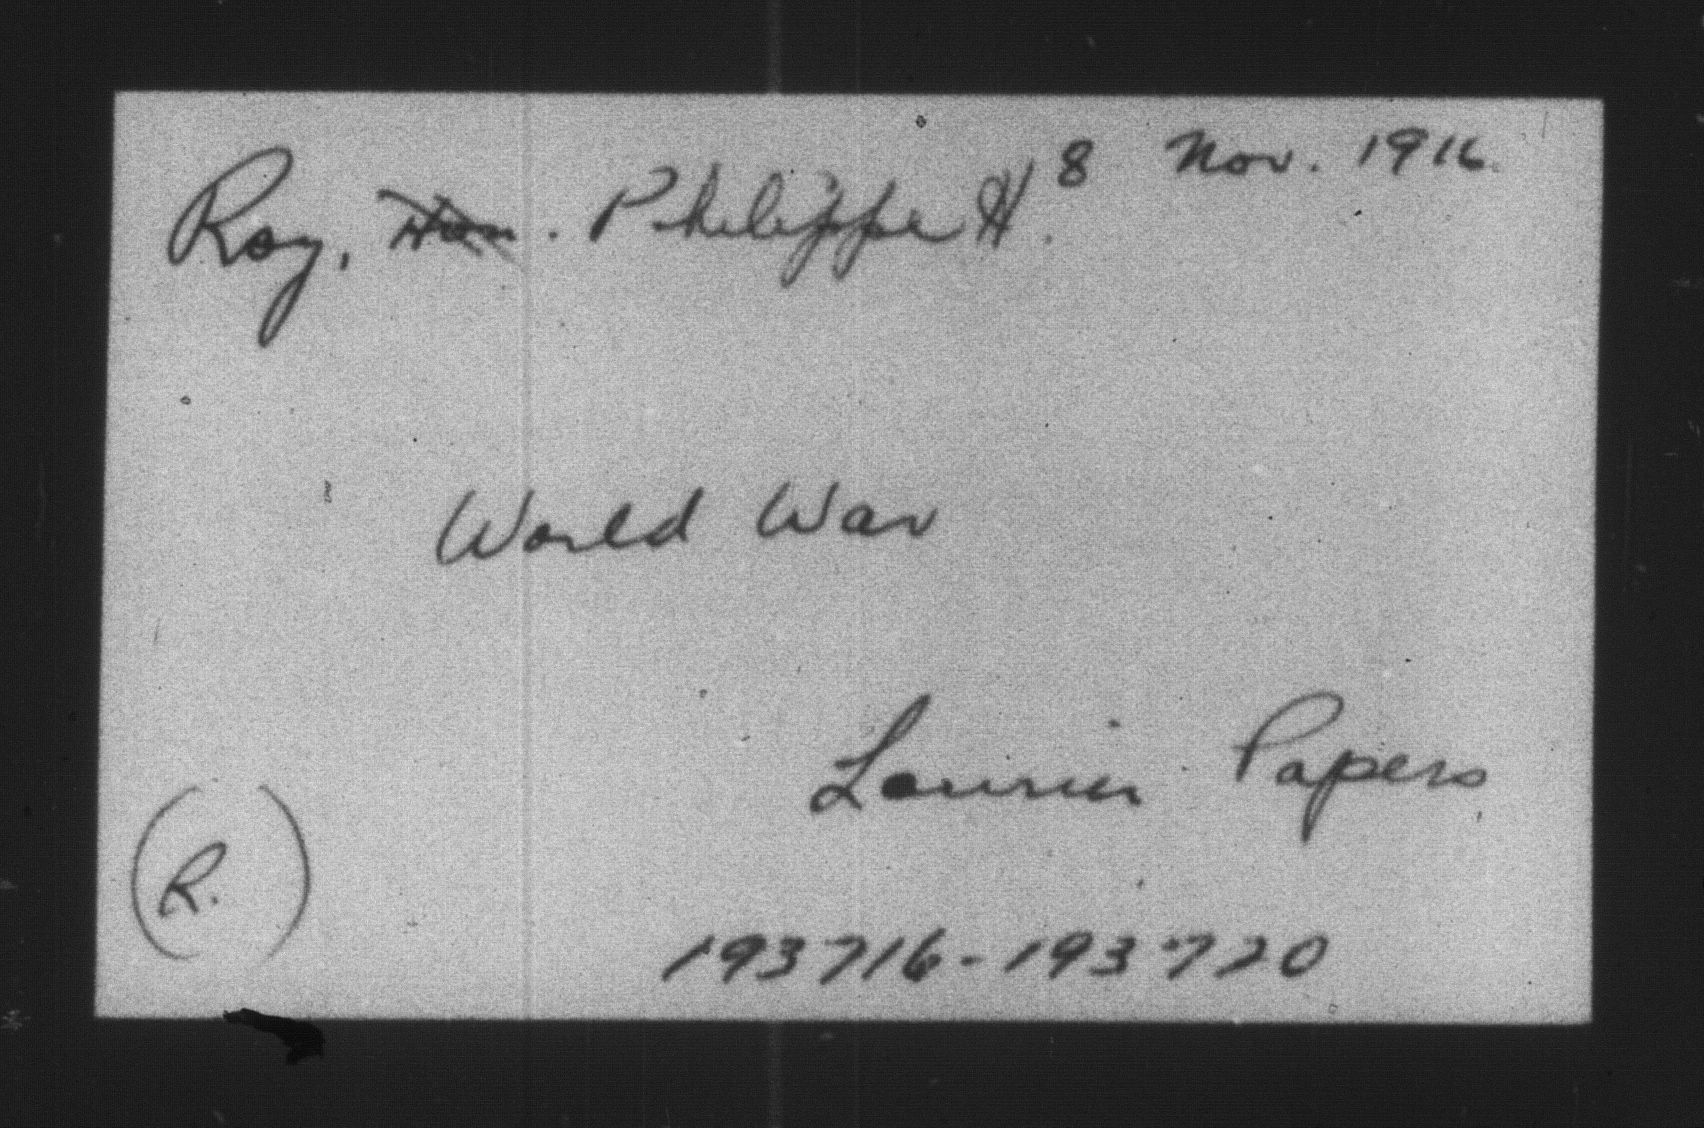 Roy, Hon. Philippe H. 8 Nov. 1916
World War
Laurier Papers
(R.)
193716-193720